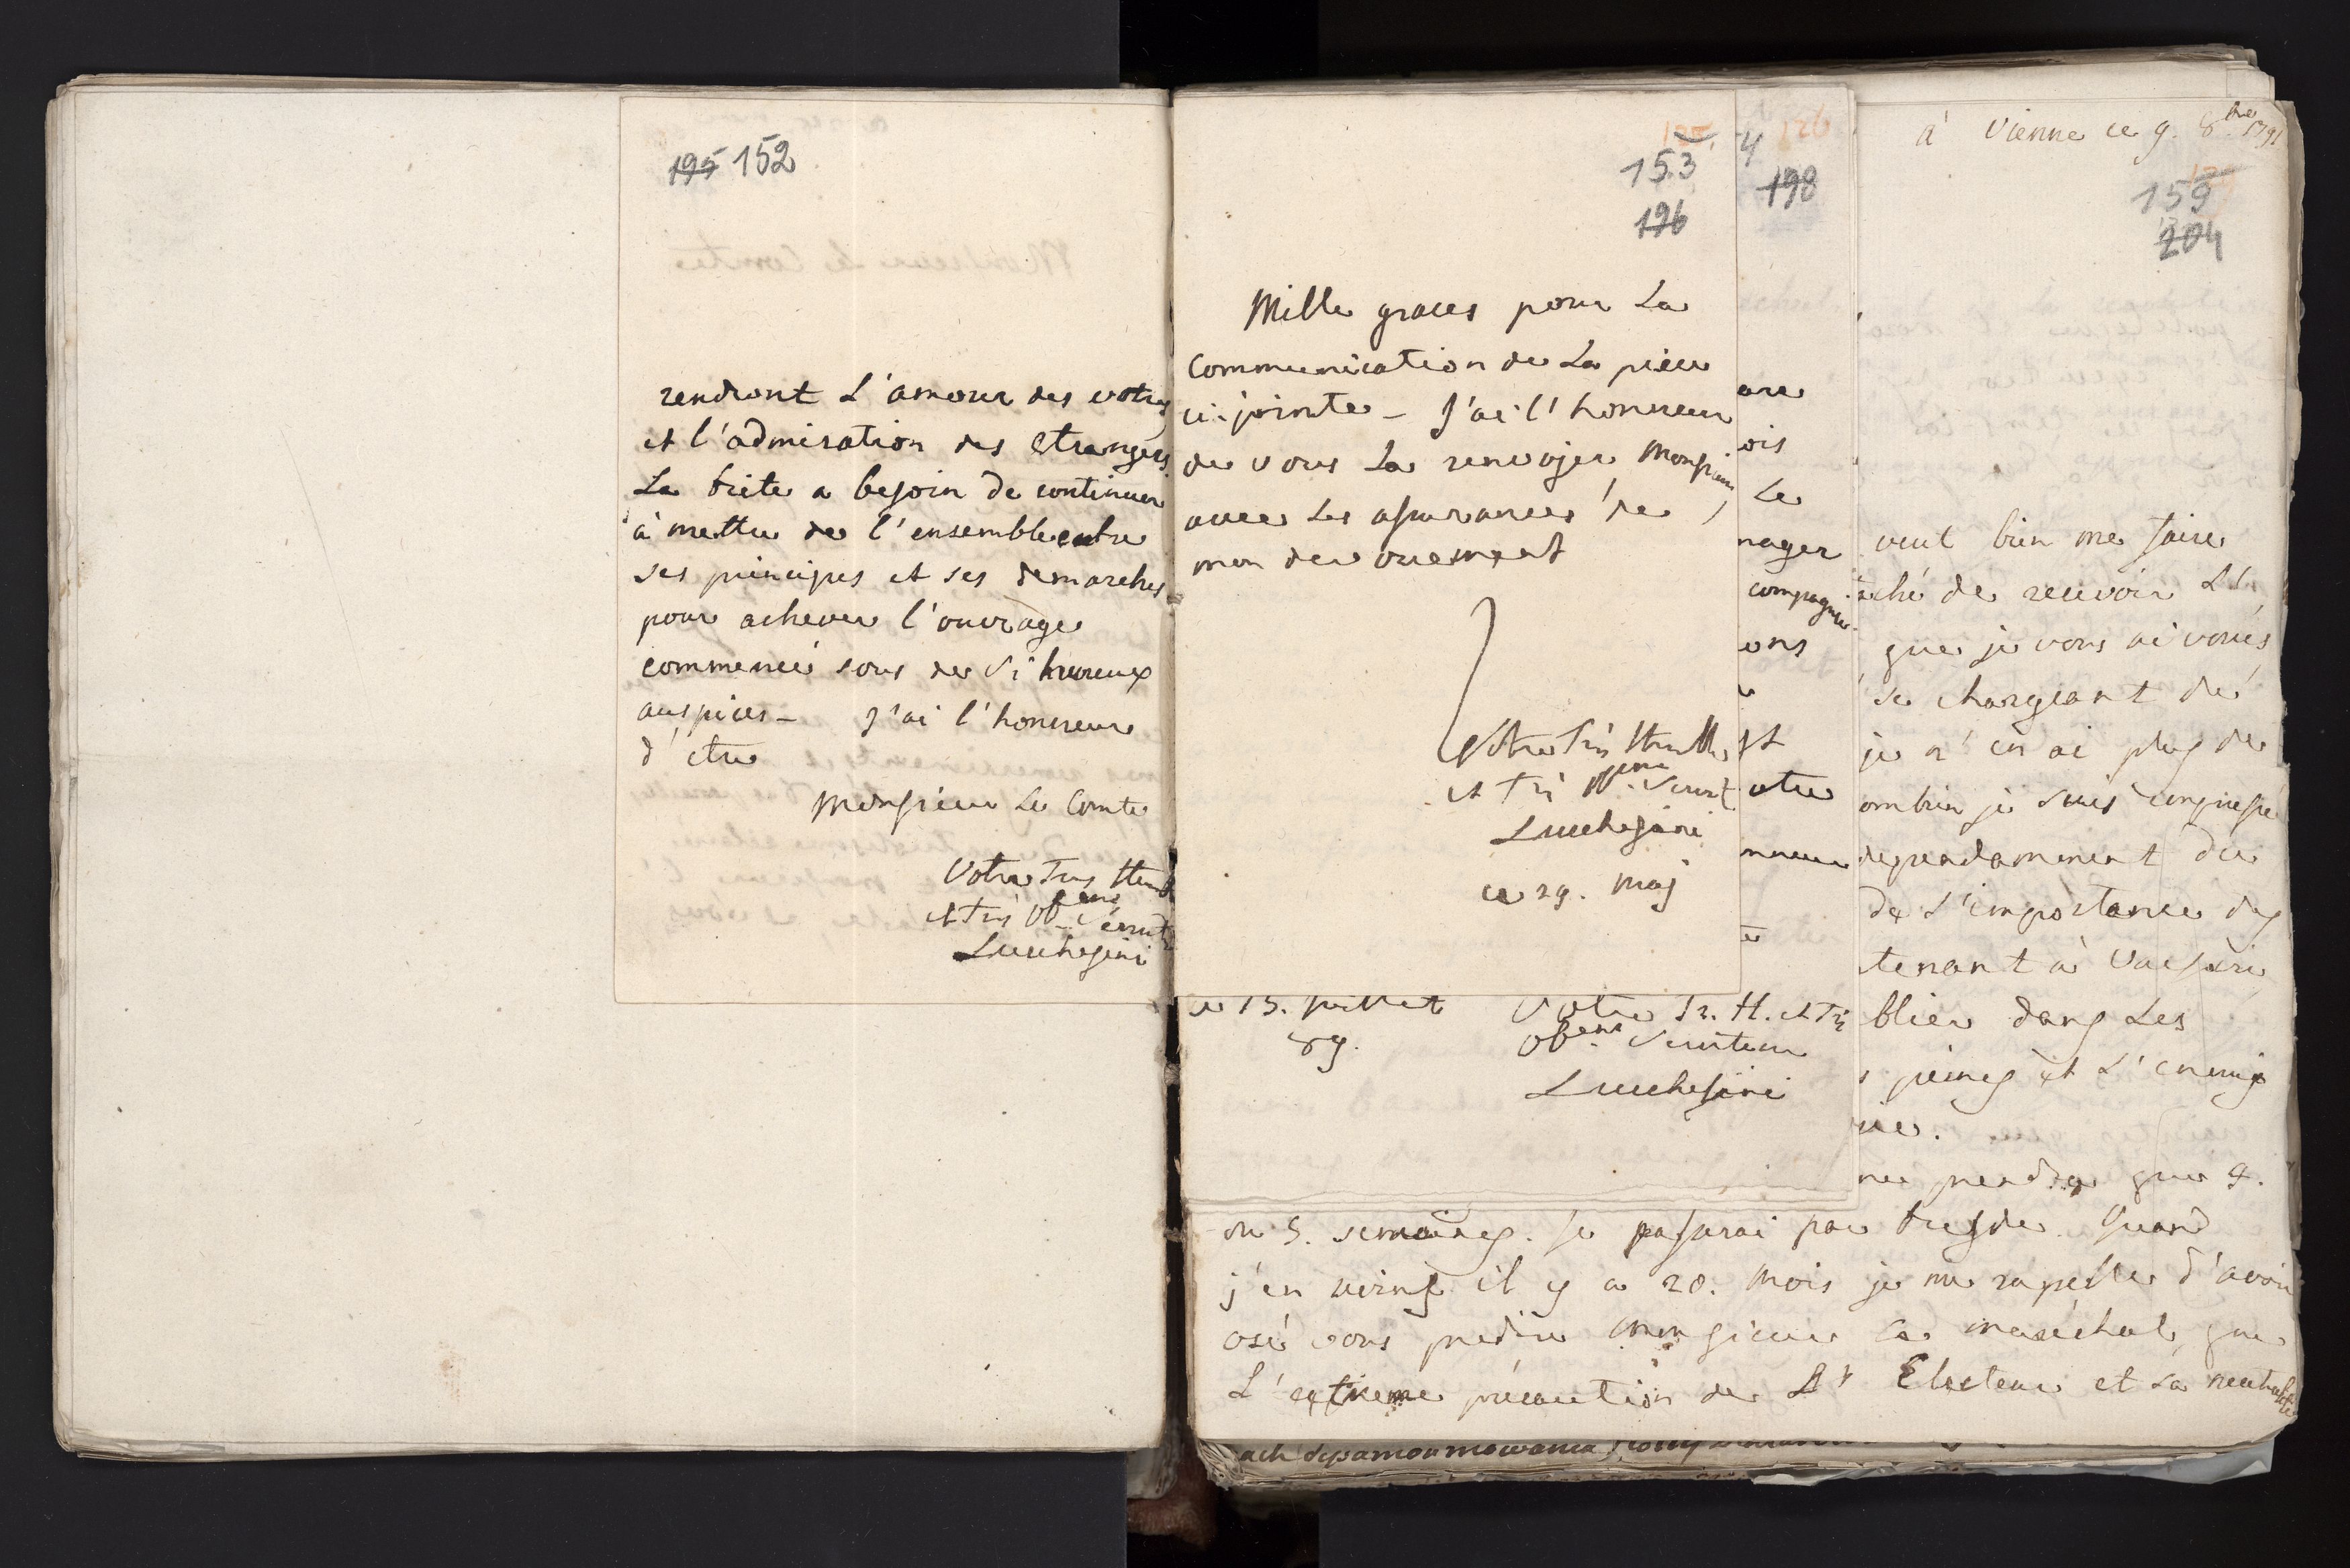 195 152
rendront L'amour des votres
et l'admiration des etrangers
La Diete a besoin de continuer
à mettre de l'ensemble entre
ses principes et ses demarches
pour achever l'ouvrage
commencé sous de si heureux
auspices – J'ai l'honneur
d'etre
Monsieur Le Comte
Votre Tres Humb
et Tres obeis Servite
Lucchesini
153
196
Mille graces pour La
communication de La piece
ci-jointe – J'ai l'honneur
de vous La renvoyer Monsieur
avec Les assurances de
mon devouement
Votre Très Humble
et Trs obeis. Servit
Lucchesini
ce 29. Maj
4
198
are
ois
Le
nager
compagnie
ons
e
st
otre
nneur
ce 15. juillet
89.
Votre Tr. H. et Tr
obeis Serviteur
Lucchesini
à Vienne ce 9. 8bre 1791
159
204
veut bien me faire
ché de recevoir Le
que je vous ai voués
se chargeant de
je n'en ai plus de
ombien je suis empressé
dependamment de
de L'importance des
tenant à Varsovie
blier dans Les
s peines et L'ennuy
me prendra que 4.
ou 5. semaines. Je passerai par Dresde. Quand
j'en vins il y a 20. Mois je me rapelle d'avoir
osé vous predire Monsieur Le maréchal, que
L'extreme précaution de Lr Electeur et sa neutralité